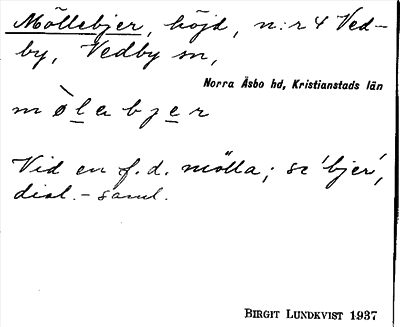 Möllebjer, höjd, n:r 4 Ved-
by, Vedby sn,
Norra Åsbo hd, Kristianstads län
m ø̀ l a b j e r
Vid en f.d. mölla; se 'bjer',
dial.-saml.
BIRGIT LUNDKVIST 1937